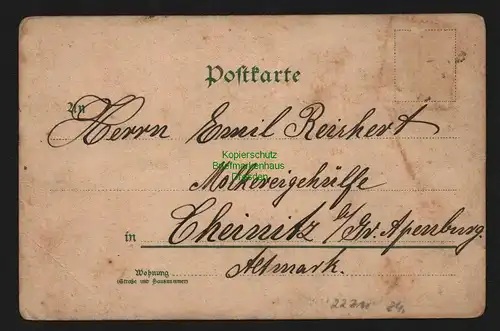 Postkarte
An
Herrn Emil Reichert
Kopierschutz
Briefmarkenhaus
Dresden
Molkereigehülfe
in Cheinitz b/Gr. Apenburg.
Altmark.
Wohnung
(Straße und Hausnummer)